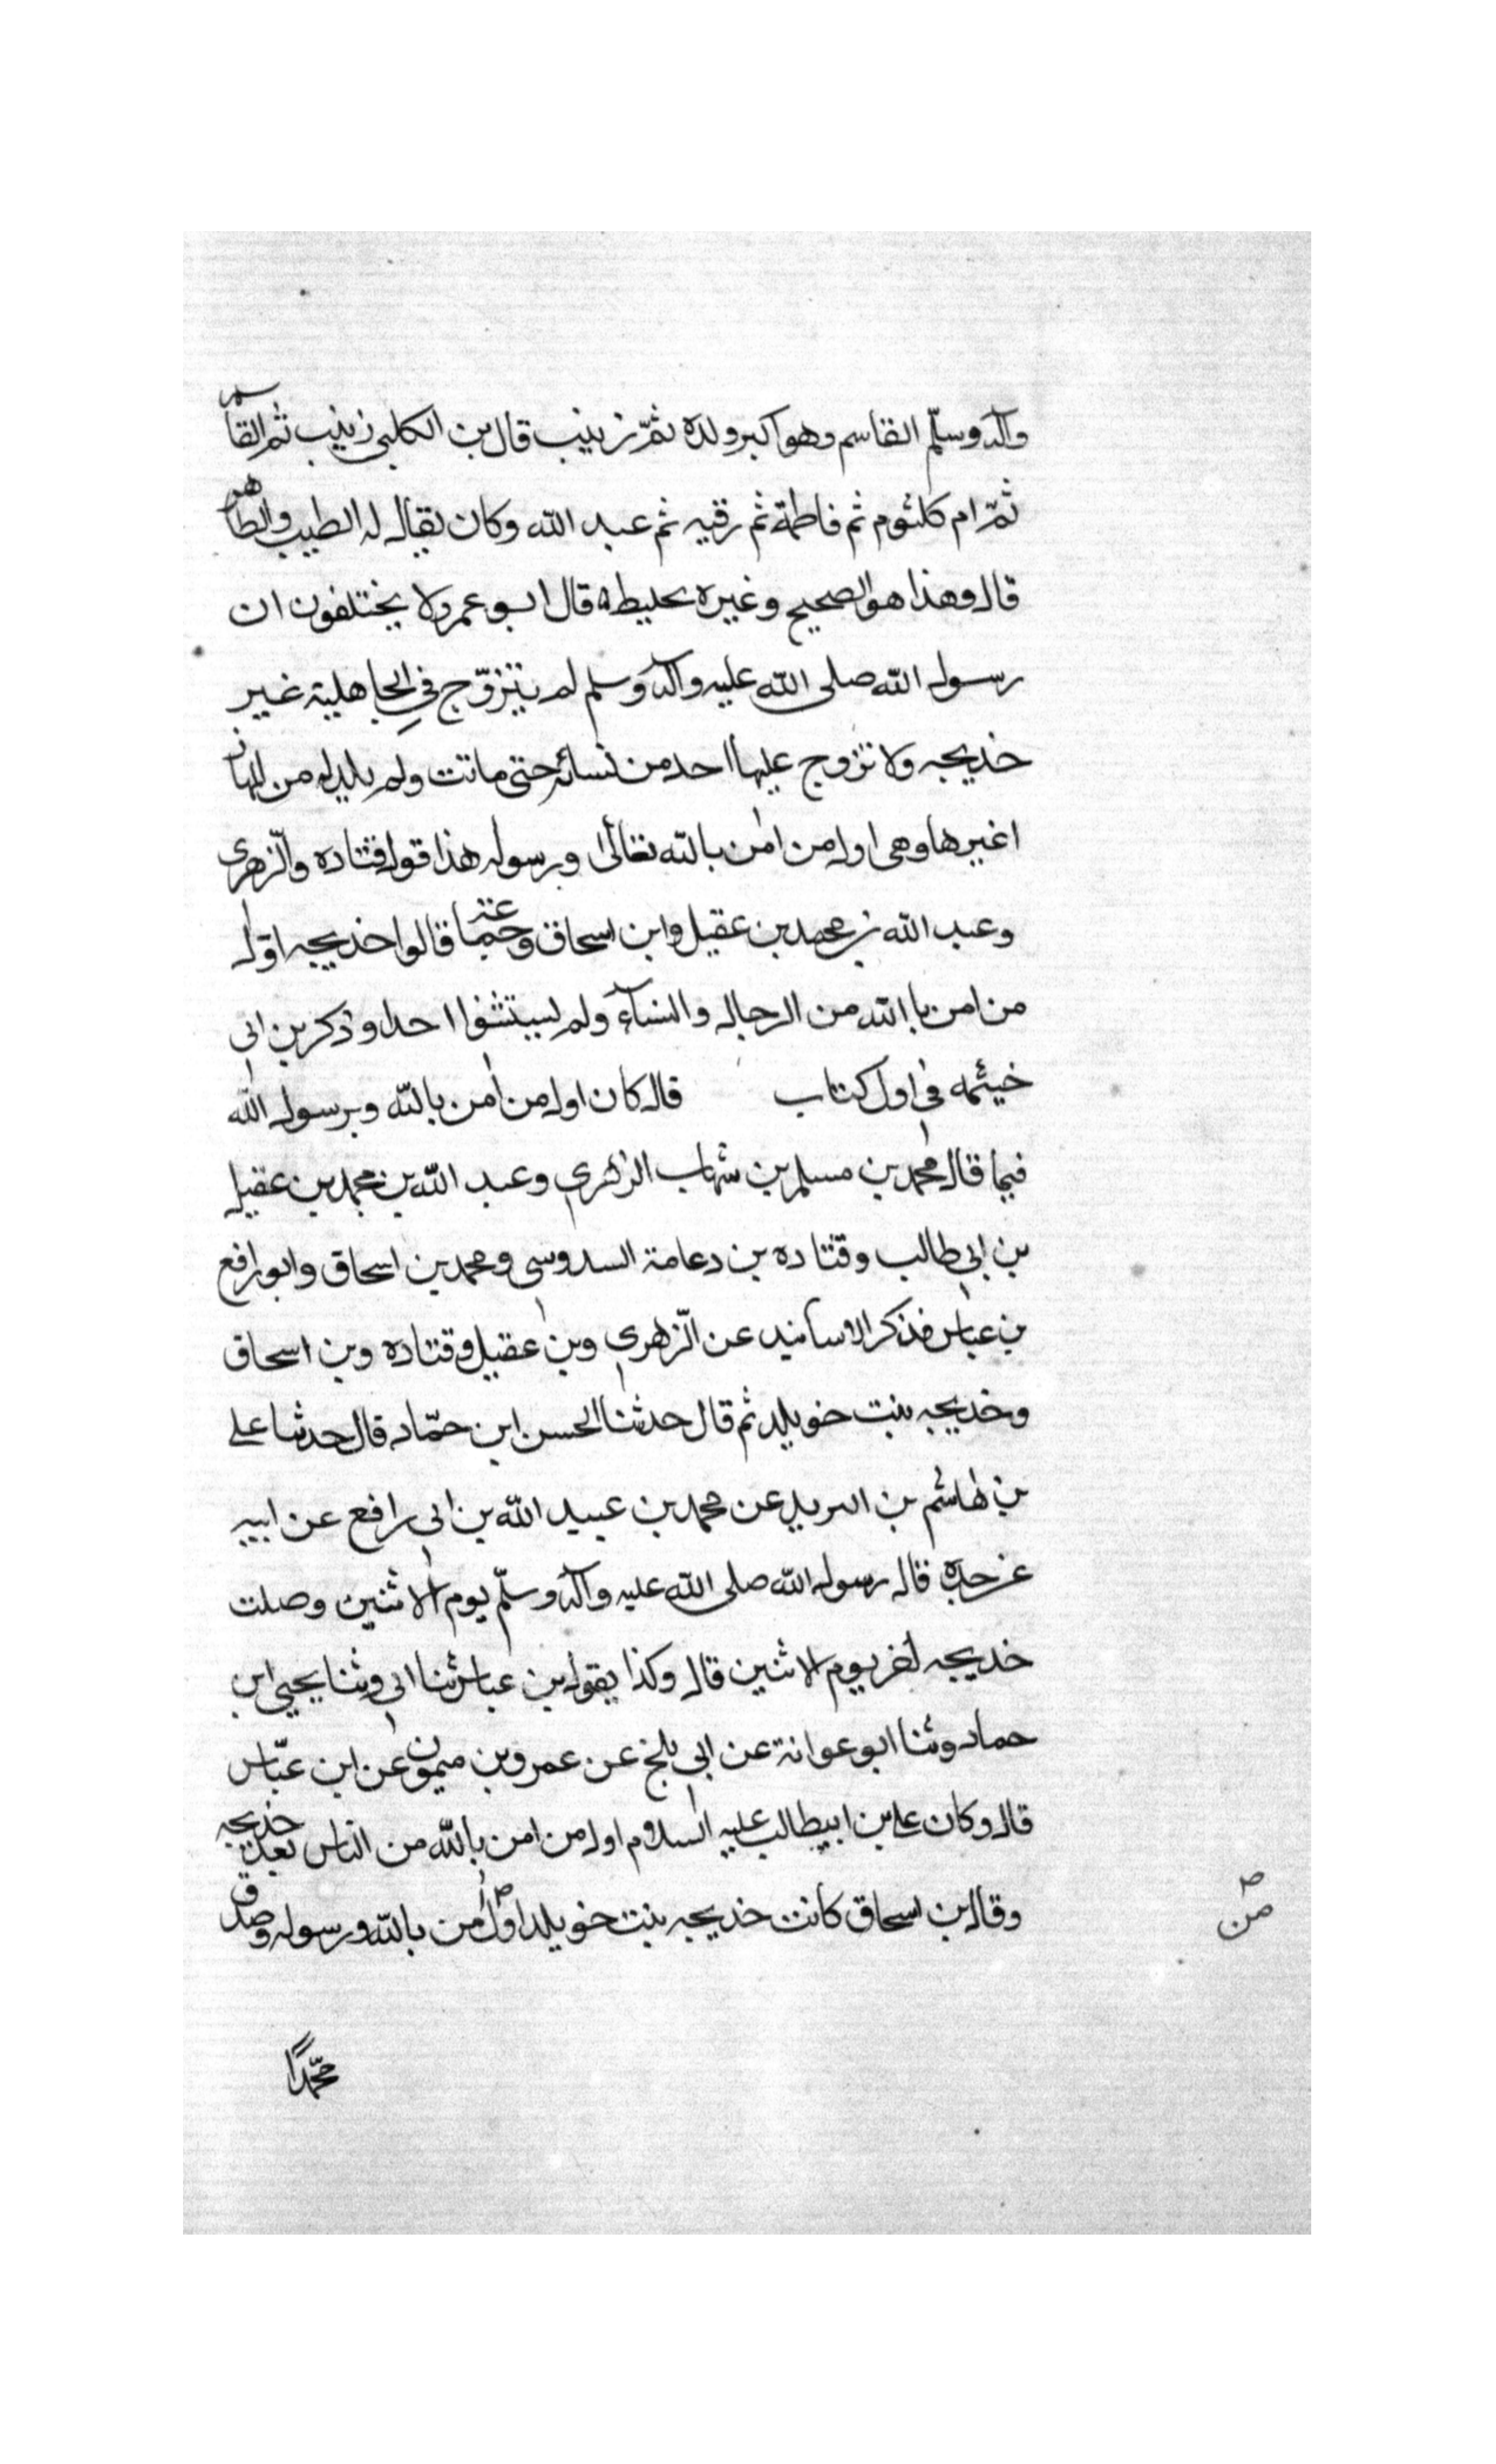 وآله وسلّم القاسم وهو اكبر ولده ثمّ زينب قال بن الكلبى زينب ثم القاسم
ثمّ ام كلثوم ثم فاطمة ثم رقيه ثم عبد الله وكان يقال له الطيب والطاهر
قال وهذا هو الصحيح وغيره تخليطه قال ابو عمر ولا يختلفون ان
رسول الله صلى الله عليه وآله وسلم لم يتزوّج في الجاهلية غير
خديجه ولا تزوج عليها احد من نسائه حتى ماتت ولم يلد له من
اغيرها وهى اول من امن بالله تعالى ورسوله هذا قول قتاده والزّهرى
وعبد الله بن محمد بن عقيل وابن اسحاق قالوا خديجه اوّل
من امن باالله من الرجال والنسآء ولم يستثنوا احدا وذكر بن ابى
خيثمه فى اول كتاب قال كان اول من امن بالله وبرسول الله
فيما قال محمد بن مسلم بن شهاب الزهرى وعبد الله بن محمد بن عقيل
بن ابى طالب وقتاده بن دعامة السدوسى ومحمد بن اسحاق وابو رافع
بن عباس فذكر الاسانيد عن الزّهرى وبن عقيل وقتاده وبن اسحاق
وخديجه بنت خويلد ثم قال حدثنا الحسن ابن حمّاد قال حدثنا على
بن هاشم بن البريد عن محمد بن عبيد الله بن ابى رافع عن ابيه
عن جده قال رسول الله صلى الله عليه وآله وسلّم يوم الاثنين وصلت
خديجه اخر يوم الاثنين قال وكذا يقول بن عباس ثنا ابى وثنا يحيى ابن
حماد وثنا ابو عوانة عن ابى بلخ عن عمرو بن ميمون عن ابن عبّاس
قال وكان على بن ابيطالب عليه السلام اول من امن بالله من الناس بعد خديجه
وقال بن اسحاق كانت خديجه بنت خويلد اول امن بالله ورسوله وصدق
من
محمّدًا